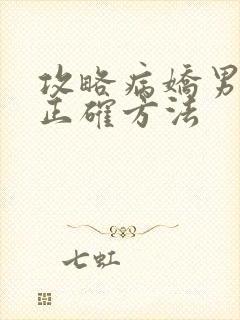 攻略病嬌男
正確方法
七虹